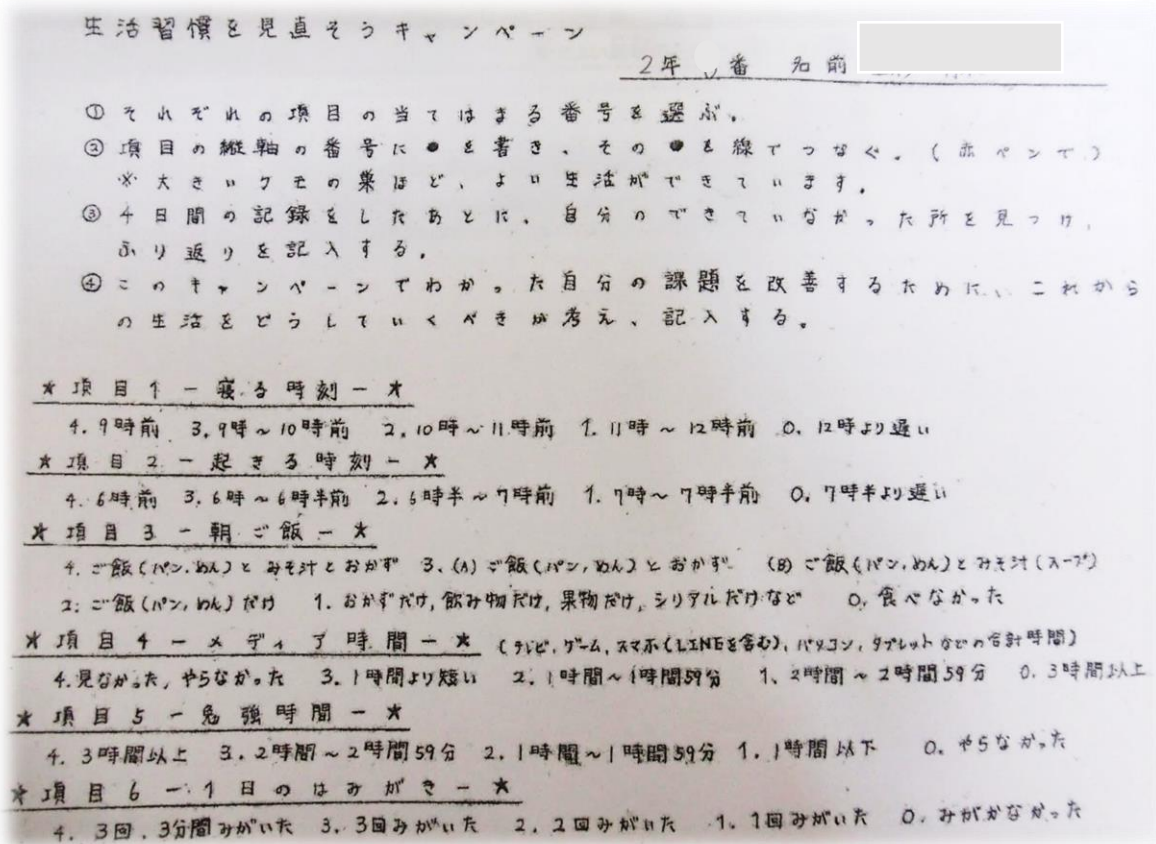 生活習慣を見直そうキャンペーン
2年 番 名前
① それぞれの項目の当てはまる番号を選ぶ。
② 項目の縦軸の番号に●を書き、その●を線でつなぐ。(赤ペンで)
※大きいクモの巣ほど、よい生活ができています。
③ 4日間の記録をしたあとに、自分のできていなかった所を見つけ、
ふり返りを記入する。
④ このキャンペーンでわかった自分の課題を改善するために、これから
の生活をどうしていくべきか考え、記入する。
★項目1-寝る時刻-★
4. 9時前 3. 9時~10時前 2. 10時~11時前 1. 11時~12時前 0. 12時より遅い
★項目2-起きる時刻-★
4. 6時前 3. 6時~6時半前 2. 6時半~7時前 1. 7時~7時半前 0. 7時半より遅い
★項目3-朝ご飯-★
4. ご飯(パン,めん)とみそ汁とおかず 3. (A)ご飯(パン,めん)とおかず (B)ご飯(パン,めん)とみそ汁(スープ)
2. ご飯(パン,めん)だけ 1. おかずだけ,飲み物だけ,果物だけ,シリアルだけなど 0. 食べなかった
★項目4-メディア時間-★ (テレビ,ゲーム,スマホ(LINEを含む),パソコン,タブレットなどの合計時間)
4. 見なかった,やらなかった 3. 1時間より短い 2. 1時間~1時間59分 1. 2時間~2時間59分 0. 3時間以上
★項目5-勉強時間-★
4. 3時間以上 3. 2時間~2時間59分 2. 1時間~1時間59分 1. 1時間以下 0. やらなかった
★項目6-1日のはみがき-★
4. 3回,3分間みがいた 3. 3回みがいた 2. 2回みがいた 1. 1回みがいた 0. みがかなかった